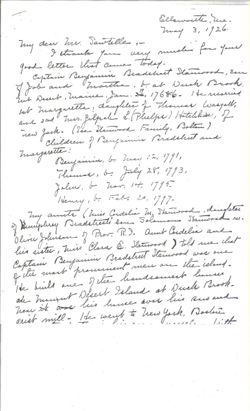 Ellsworth, Me.
May 3, 1926.
My dear Mr. Sawtelle, -
I thank you very much for your
good letter that came today.
Captain Benjamin Bradstreet Stanwood, son
of Job and Martha, b. at Duck Brook,
Mt. Desert, Maine, Jan. 1768. He married
1st Margarette, daughter of Thomas Wasgatt,
and 2nd Mrs. (Phelps) Hotchkiss, of
New York. (See Stanwood Family, Bolton)
Children of Benjamin Bradstreet and
Margarette:
Benjamin, b. Mar. 12, 1791,
Thomas, b. July 28, 1793,
John, b. Nov. 14, 1795
Henry, b. Feb. 20, 1797.
My aunts (Miss Cordelia M. Stanwood, daughter
of Humphrey Bradstreet's son Solomon Stanwood m.
Olivia Johnson of Prov. R.I. Aunt Cordelia and
his sister, Miss Clara E. Stanwood) told me that
Captain Benjamin Bradstreet Stanwood was one
of the most prominent men on the island.
He built one of the handsomest houses
on Mount Desert Island at Duck Brook.
Near it was his house over his saw and
grist mill. He went to New York, Boston